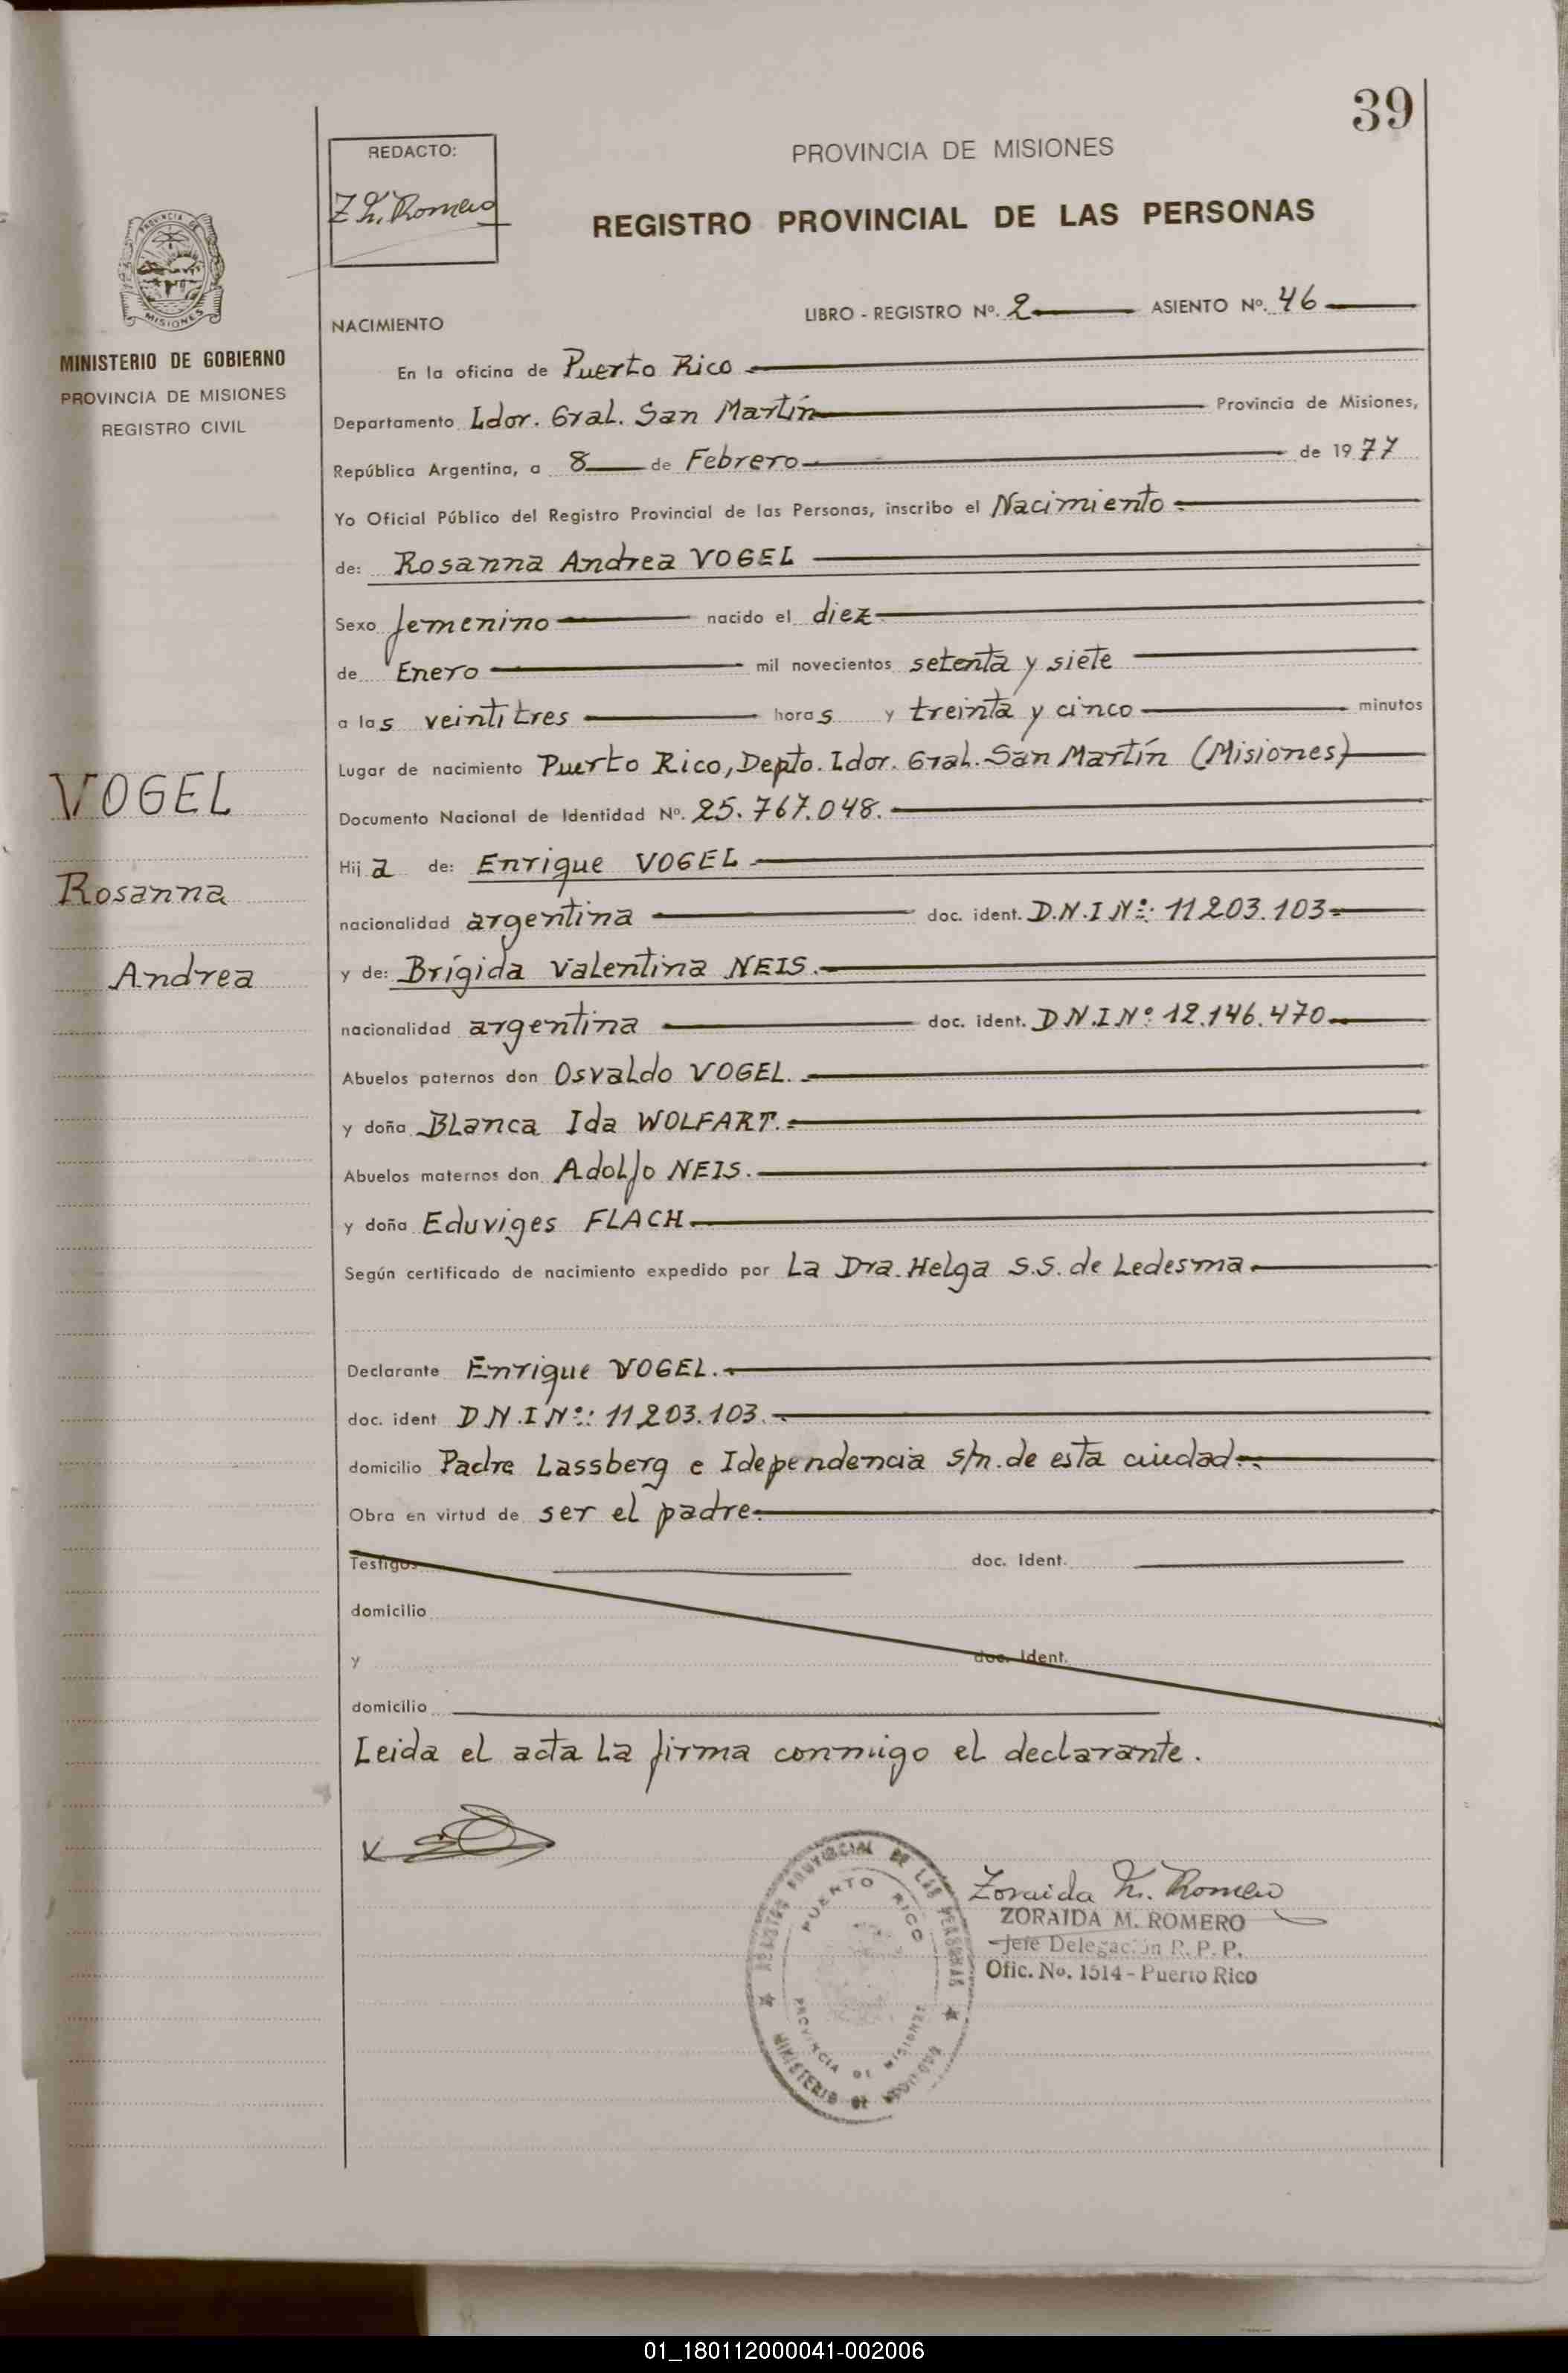 39
REDACTO:
Z M. Romero
PROVINCIA DE MISIONES
REGISTRO PROVINCIAL DE LAS PERSONAS
PROVINCIA DE
MISIONES
MINISTERIO DE GOBIERNO
PROVINCIA DE MISIONES
REGISTRO CIVIL
NACIMIENTO
LIBRO - REGISTRO Nº. 2 ASIENTO Nº. 46
En la oficina de Puerto Rico
Departamento Ldor. Gral. San Martín Provincia de Misiones,
República Argentina, a 8 de Febrero de 1977
Yo Oficial Público del Registro Provincial de las Personas, inscribo el Nacimiento
de: Rosanna Andrea VOGEL
Sexo femenino nacido el diez
de Enero mil novecientos setenta y siete
a las veintitres horas y treinta y cinco minutos
Lugar de nacimiento Puerto Rico, Depto. Ldor. Gral. San Martín (Misiones)
Documento Nacional de Identidad Nº. 25.767.048.
Hija de: Enrique VOGEL
nacionalidad argentina doc. ident. D.N.I Nº: 11203.103
y de: Brígida Valentina NEIS.
nacionalidad argentina doc. ident. D N.I Nº: 12.146.470
Abuelos paternos don Osvaldo VOGEL.
y doña Blanca Ida WOLFART.
Abuelos maternos don Adolfo NEIS.
y doña Eduviges FLACH
Según certificado de nacimiento expedido por La Dra. Helga S.S. de Ledesma
Declarante Enrique VOGEL.
doc. ident D N.I Nº: 11203.103.
domicilio Padre Lassberg e Idependencia s/n. de esta ciudad
Obra en virtud de ser el padre
Testigos doc. Ident.
domicilio
y doc. Ident.
domicilio
Leida el acta la firma conmigo el declarante.
VOGEL
Rosanna
Andrea
REGISTRO PROVINCIAL DE LAS PERSONAS
PUERTO RICO
PROVINCIA DE MISIONES
MINISTERIO DE GOBIERNO
Zoraida M. Romero
ZORAIDA M. ROMERO
Jefe Delegación R. P. P.
Ofic. No. 1514 - Puerto Rico
01_180112000041-002006